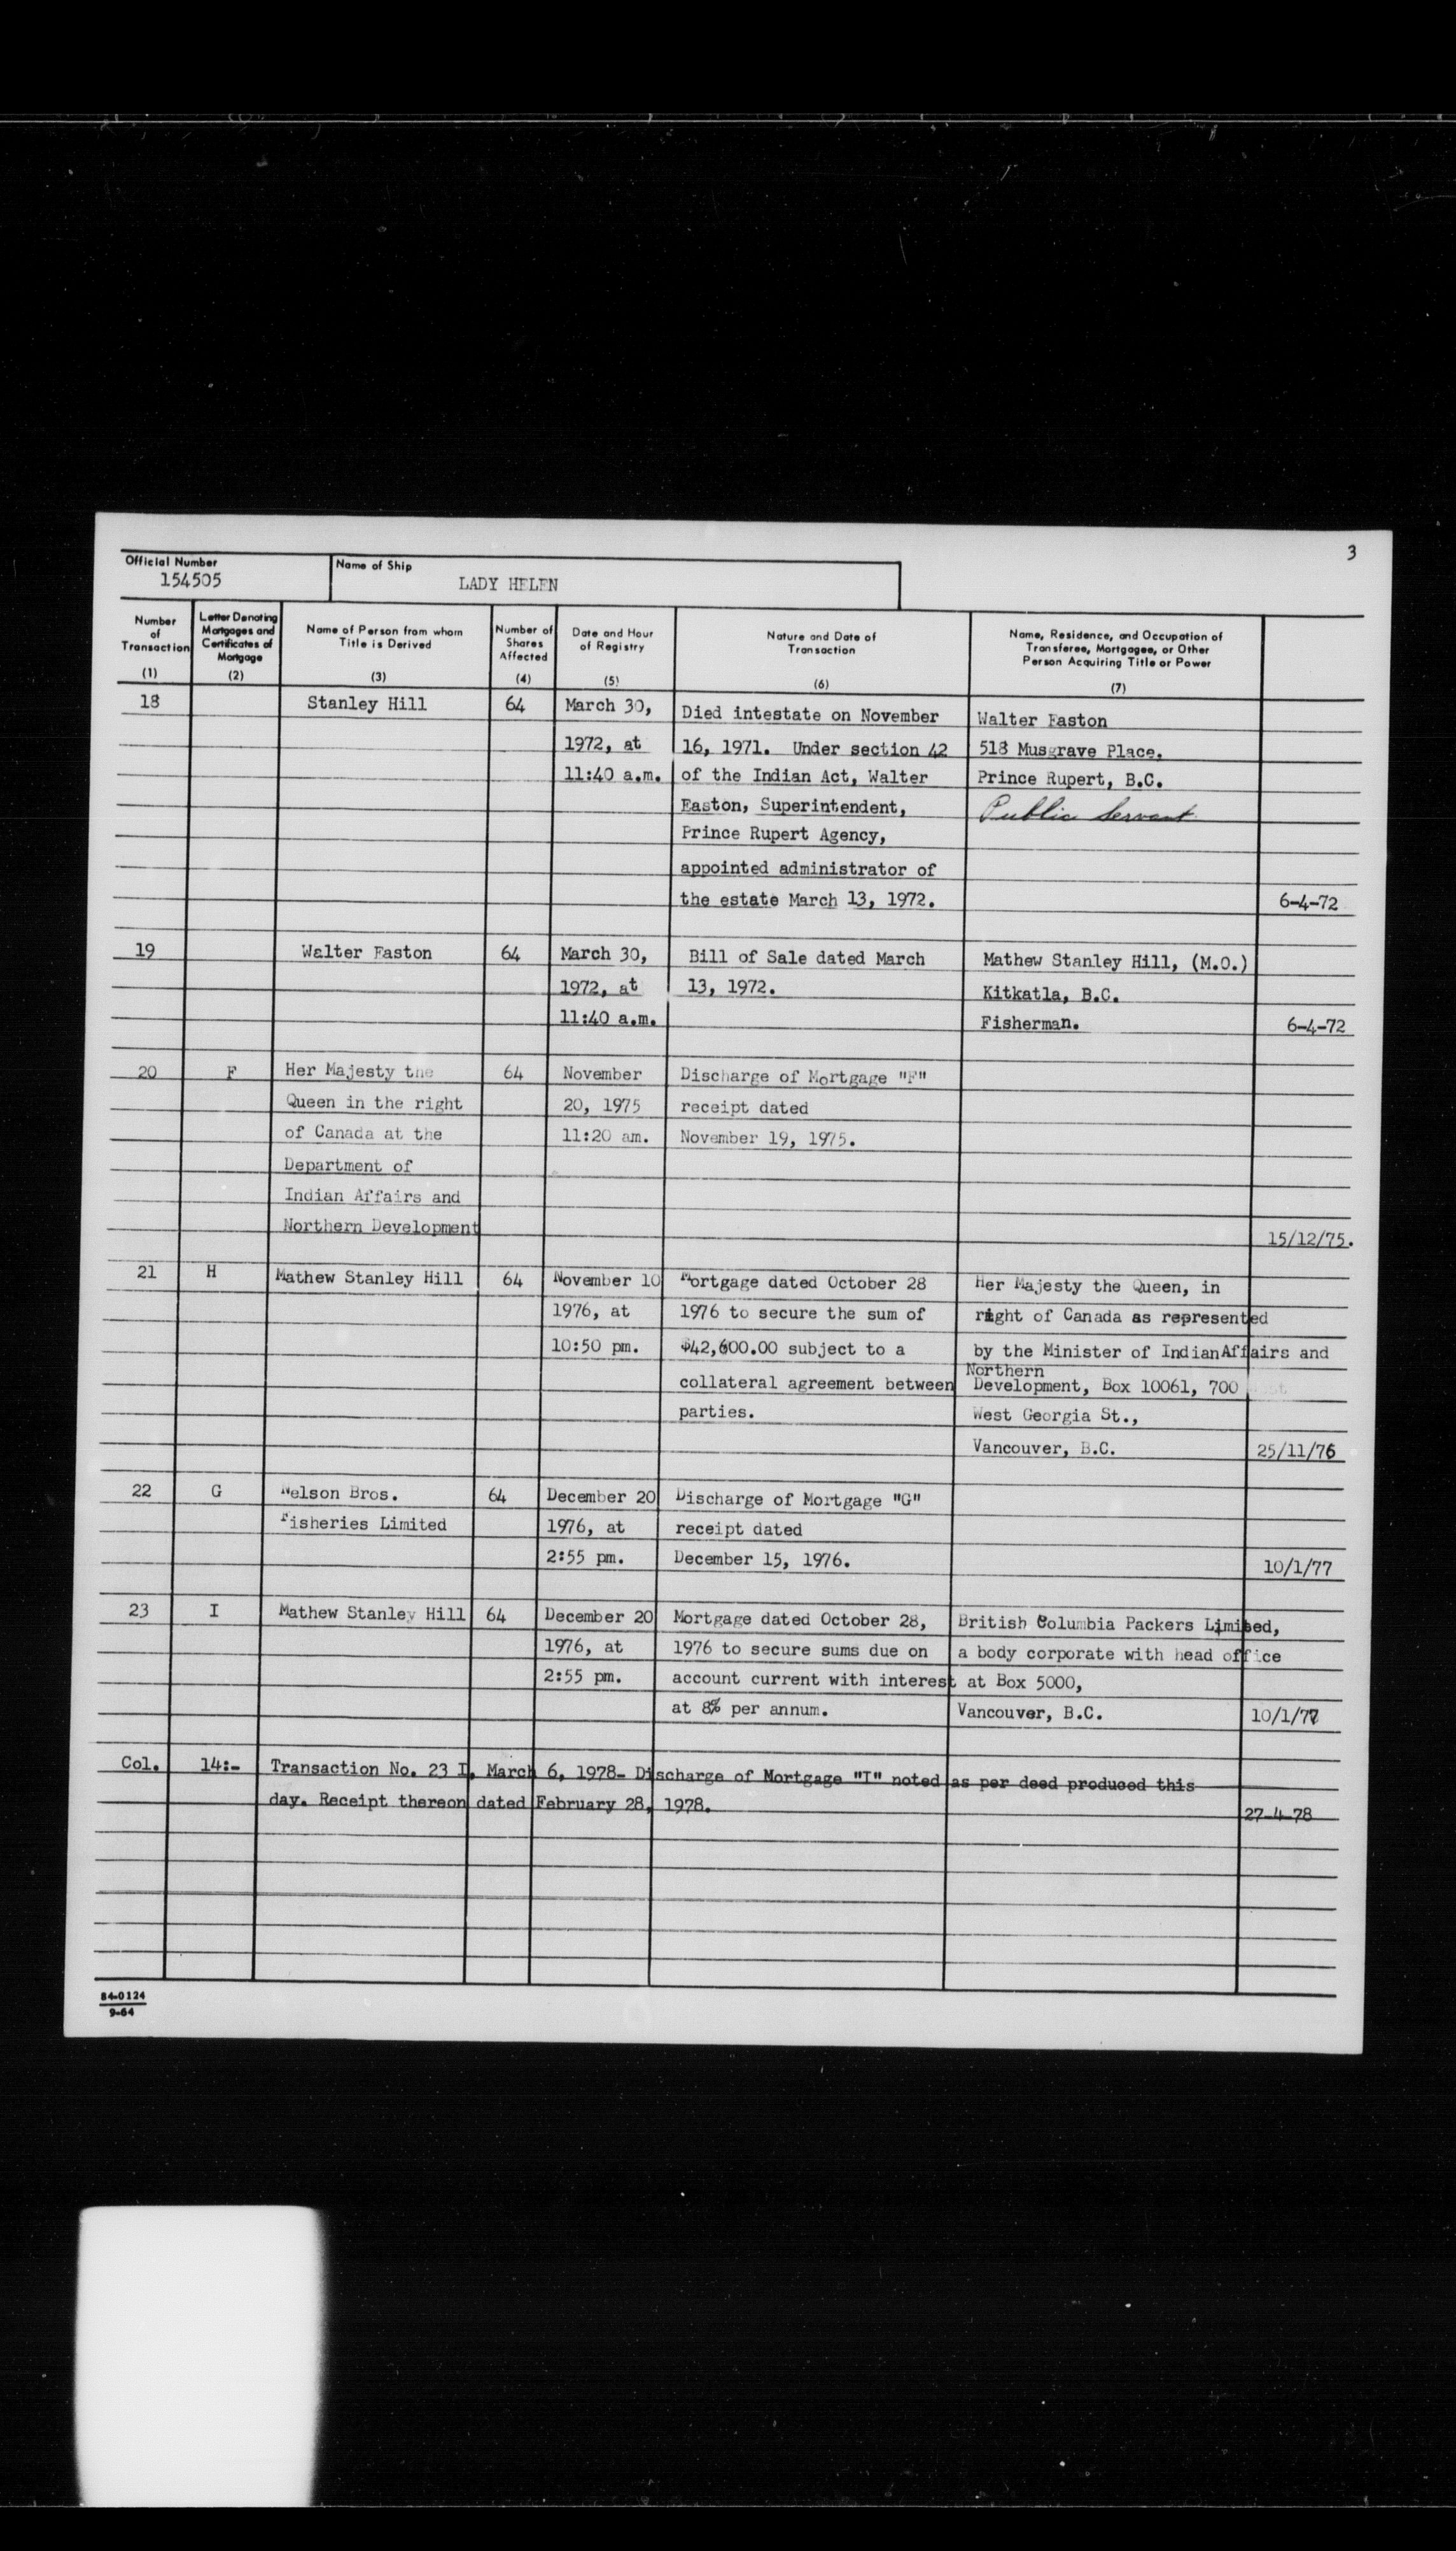 3
Official Number
154505
Name of Ship
LADY HELEN
Number of Transaction (1)
Letter Denoting Mortgages and Certificates of Mortgage (2)
Name of Person from whom Title is Derived (3)
Number of Shares Affected (4)
Date and Hour of Registry (5)
Nature and Date of Transaction (6)
Name, Residence, and Occupation of Transferee, Mortgagee, or Other Person Acquiring Title or Power (7)
18 Stanley Hill 64 March 30, Died intestate on November Walter Easton
1972, at 16, 1971. Under section 42 518 Musgrave Place.
11:40 a.m. of the Indian Act, Walter Prince Rupert, B.C.
Easton, Superintendent, Public Servant
Prince Rupert Agency,
appointed administrator of
the estate March 13, 1972. 6-4-72
19 Walter Easton 64 March 30, Bill of Sale dated March Mathew Stanley Hill, (M.O.)
1972, at 13, 1972. Kitkatla, B.C.
11:40 a.m. Fisherman. 6-4-72
20 F Her Majesty the 64 November Discharge of Mortgage "F"
Queen in the right 20, 1975 receipt dated
of Canada at the 11:20 am. November 19, 1975.
Department of
Indian Affairs and
Northern Development 15/12/75.
21 H Mathew Stanley Hill 64 November 10 Mortgage dated October 28 Her Majesty the Queen, in
1976, at 1976 to secure the sum of right of Canada as represented
10:50 pm. $42,600.00 subject to a by the Minister of IndianAffairs and
Northern
collateral agreement between Development, Box 10061, 700
parties. West Georgia St.,
Vancouver, B.C. 25/11/76
22 G Nelson Bros. 64 December 20 Discharge of Mortgage "G"
Fisheries Limited 1976, at receipt dated
2:55 pm. December 15, 1976. 10/1/77
23 I Mathew Stanley Hill 64 December 20 Mortgage dated October 28, British Columbia Packers Limited,
1976, at 1976 to secure sums due on a body corporate with head office
2:55 pm. account current with interest at Box 5000,
at 8% per annum. Vancouver, B.C. 10/1/77
Col. 14:- Transaction No. 23 I, March 6, 1978- Discharge of Mortgage "I" noted as per deed produced this
day. Receipt thereon dated February 28, 1978. 27-4-78
84-0124
9-64